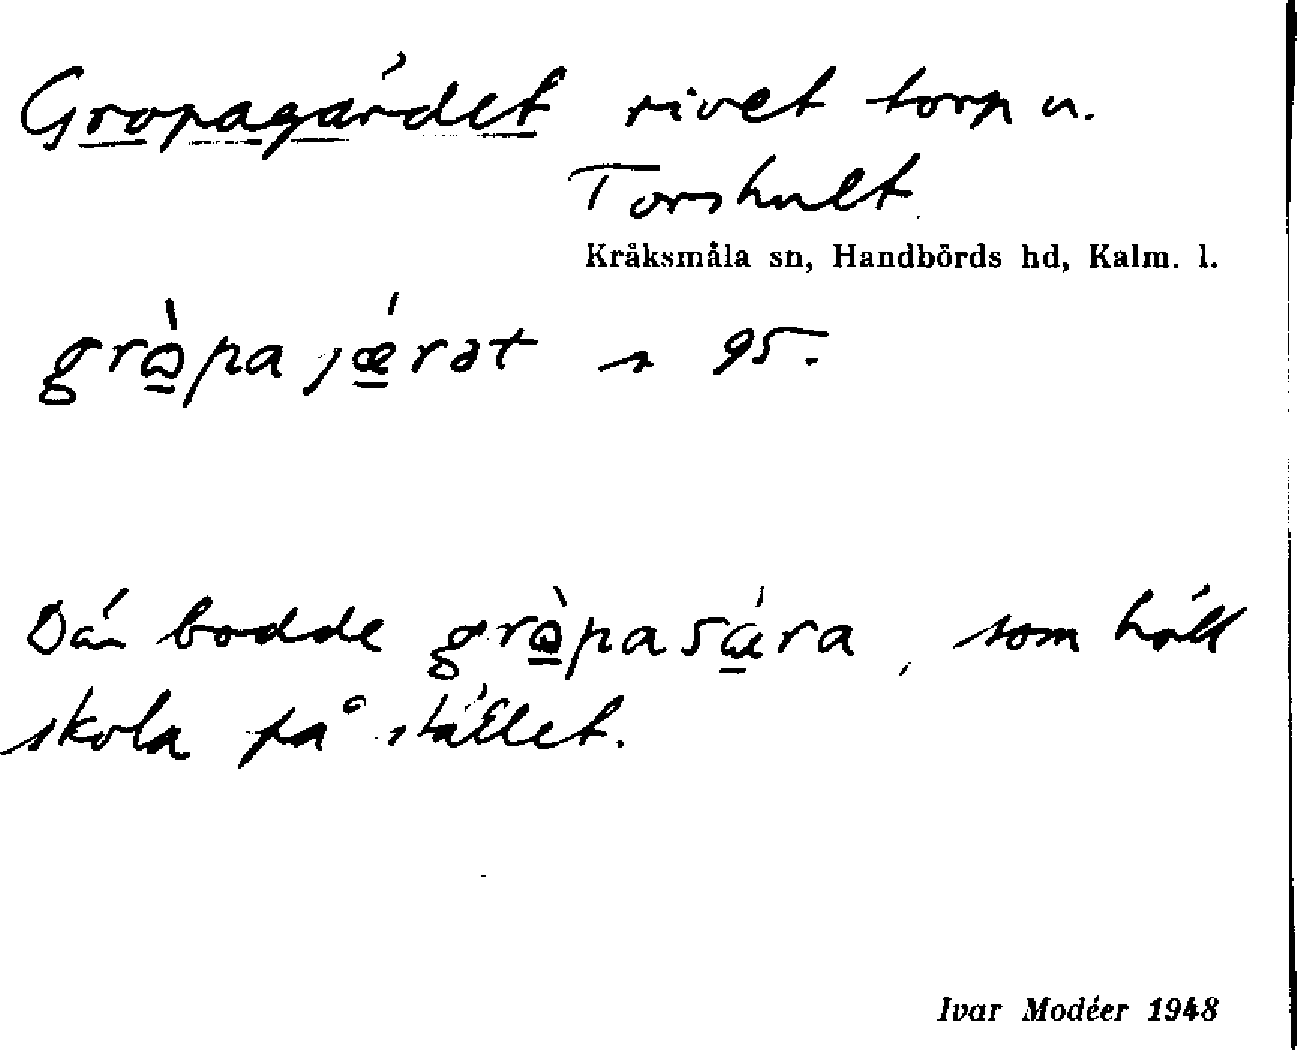 Gropagärdet rivet torp u.
Torshult.
Kråksmåla sn, Handbörds hd, Kalm. l.
grὼpa jǽrət s 95.
Där bodde grὼpa sára, som höll
skola på stället.
Ivar Modéer 1948